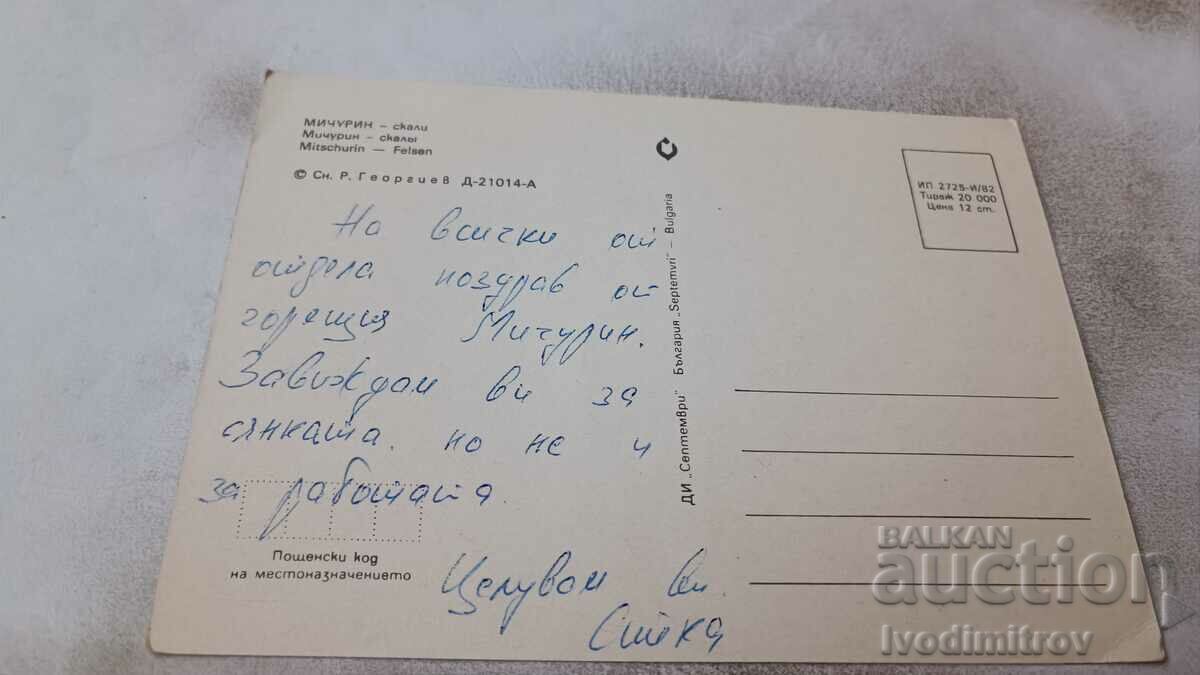 МИЧУРИН – скали
Мичурин – скалы
Mitschurin — Felsen
© Сн. Р. Георгиев Д-21014-А
На всички от
отдела поздрав от
горещия Мичурин.
Завиждам ви за
сянката. но не и
за работата.
Целувам ви.
Пощенски код
на местоназначението
ДИ „Септември" България „Septemvri" – Bulgaria
ИП 2725-И/82
Тираж 20 000
Цена 12 ст.
BALKAN
auction
Ivodimitrov